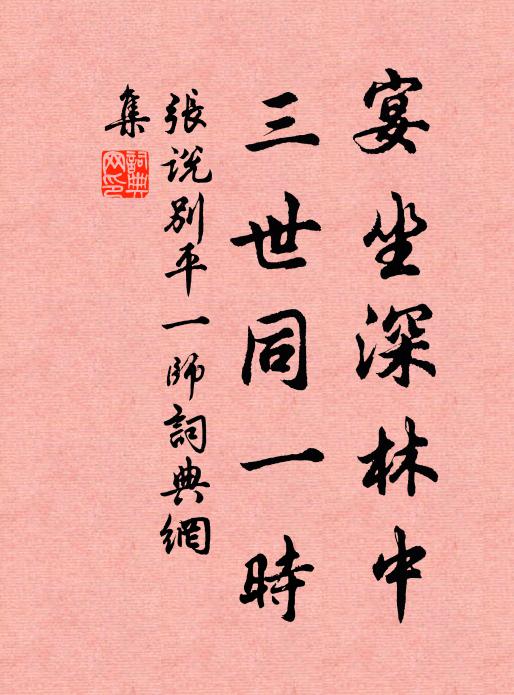 宴坐深林中
三世同一時
張説別平一師詞典網
集
詞典網印